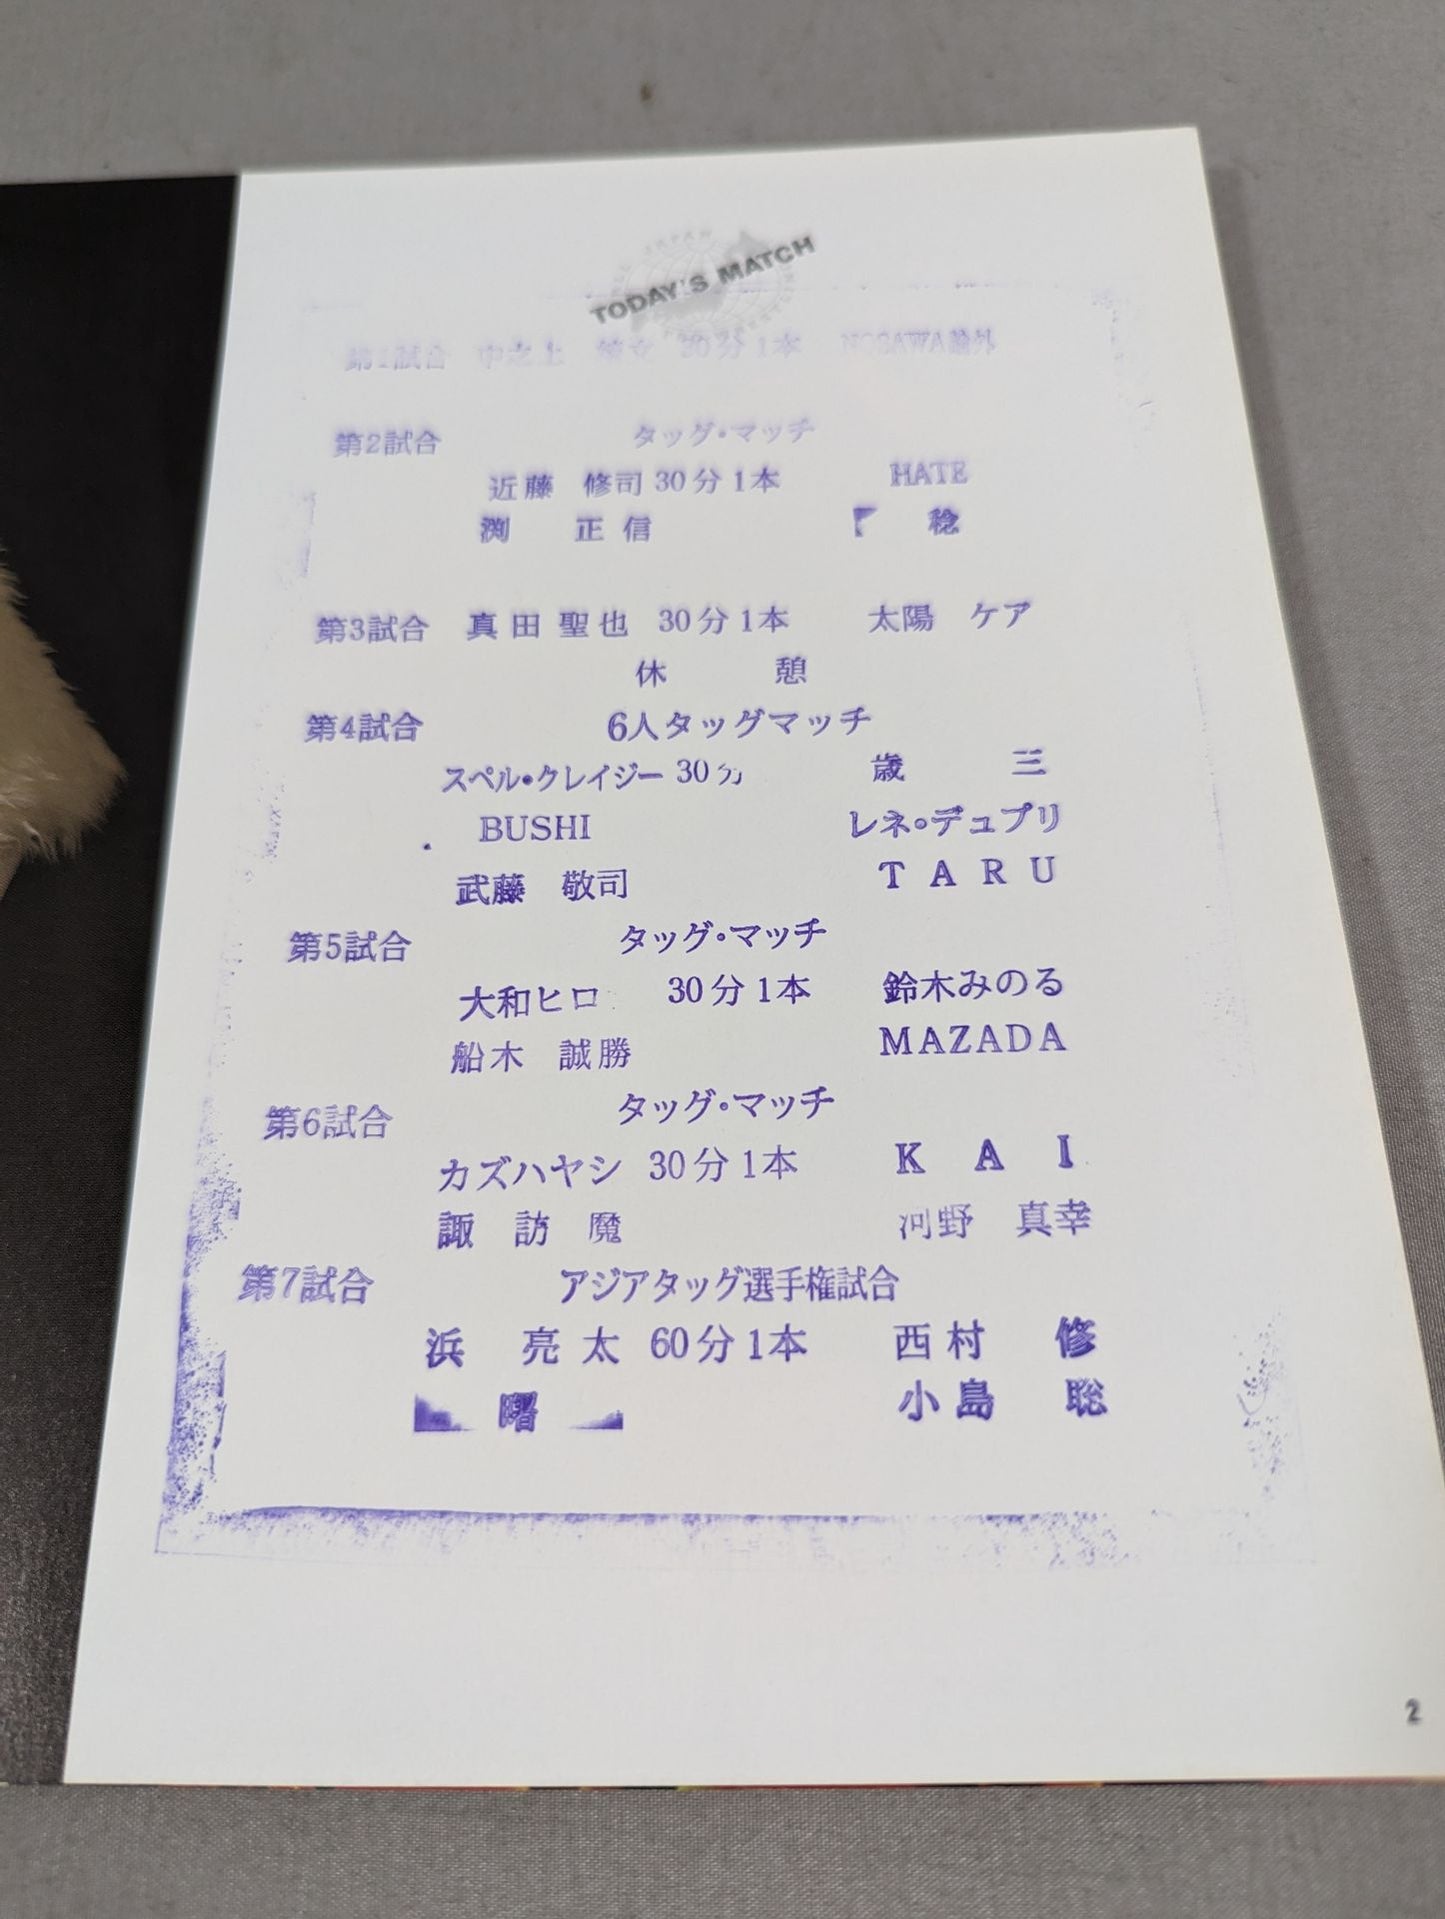 TODAY'S MATCH
第1試合 中之上 30分1本 NOSAWA論外
第2試合 タッグ・マッチ
近藤 修司 30分1本 HATE
渕 正信 稔
第3試合 真田聖也 30分1本 太陽 ケア
休 憩
第4試合 6人タッグマッチ
スペル・クレイジー 30分 歳 三
BUSHI レネ・デュプリ
武藤 敬司 TARU
第5試合 タッグ・マッチ
大和ヒロ 30分1本 鈴木みのる
船木 誠勝 MAZADA
第6試合 タッグ・マッチ
カズハヤシ 30分1本 K A I
諏訪魔 河野 真幸
第7試合 アジアタッグ選手権試合
浜 亮太 60分1本 西村 修
曙 小島 聡
2